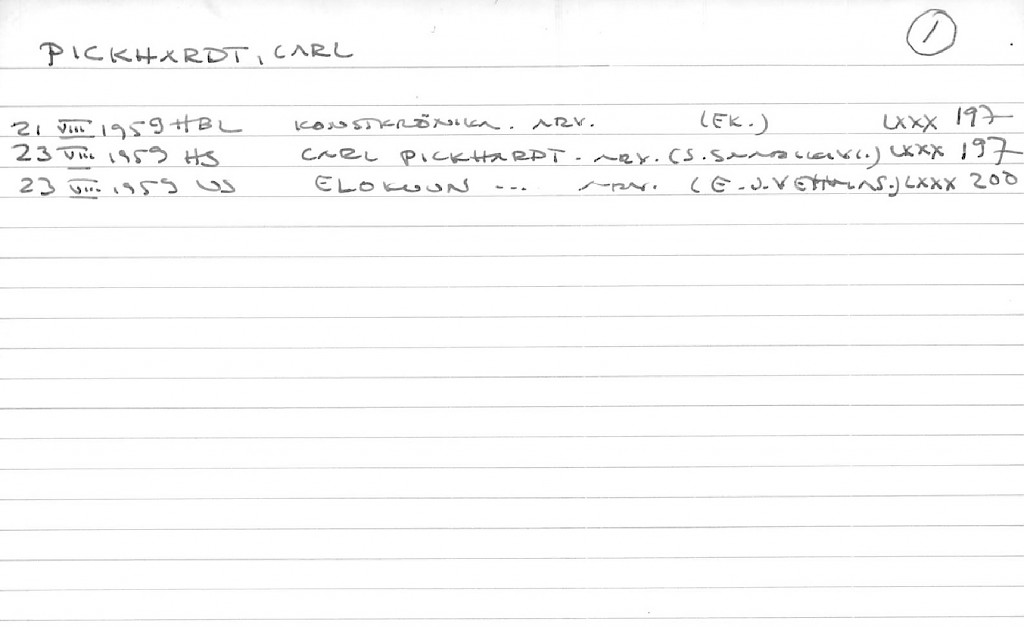 1
PICKHARDT, CARL
21 VIII 1959 HBL KONSTKRÖNIKA. ARV. (EK.) LXXX 197
23 VIII 1959 HS CARL PICKHARDT. ARV. (S. LXXX 197
23 VIII 1959 US ELOKUUN --- ARV. (E.J. VEHMAS.) LXXX 200